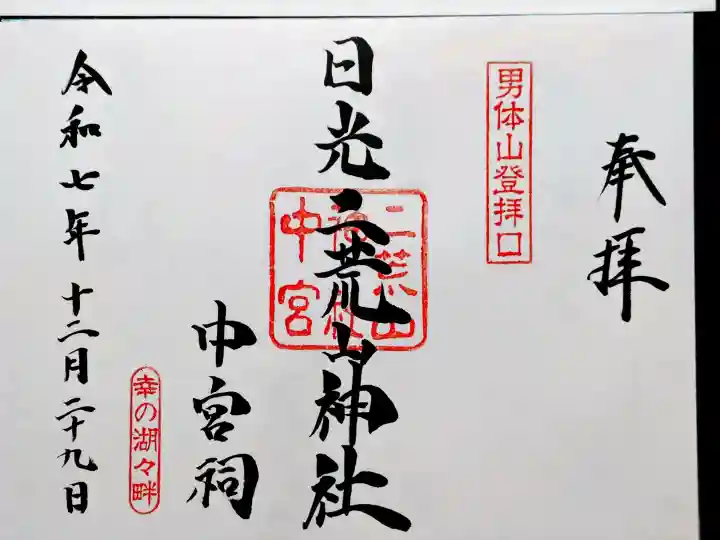 奉拝
男体山登拝口
日光二荒山神社
二荒山
神社
中宮
中宮祠
幸の湖々畔
令和七年十二月二十九日